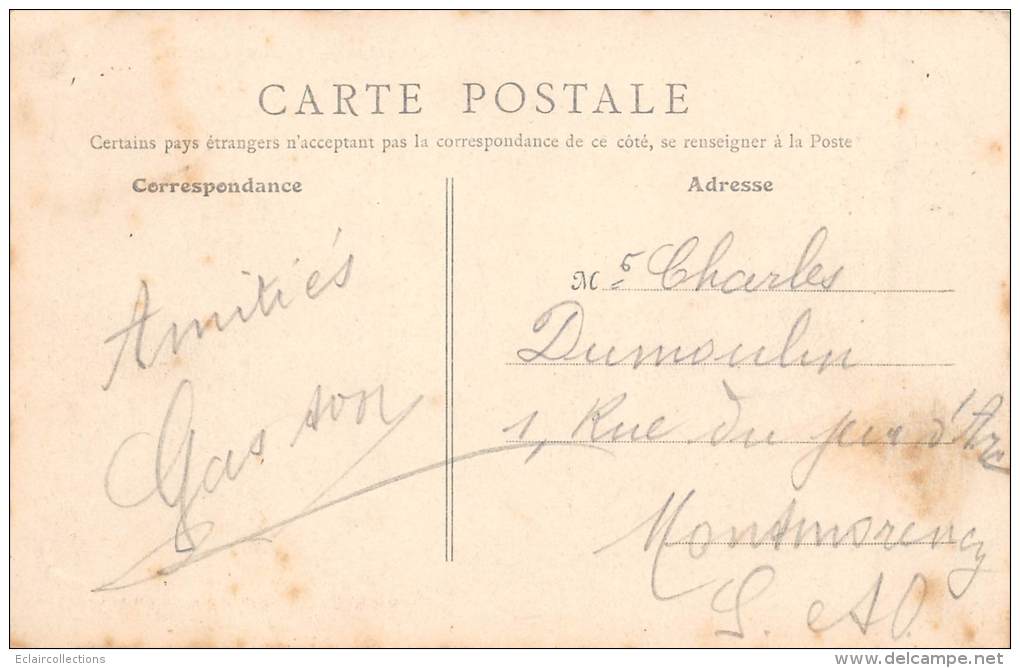 CARTE POSTALE
Certains pays étrangers n'acceptant pas la correspondance de ce côté, se renseigner à la Poste
Correspondance
Amitiés
Gaston
Adresse
Mr Charles
Dumoulin
1, Rue du jeu d'Arc
Montmorency
S. et O.
Eclaircollections
delcampe.net